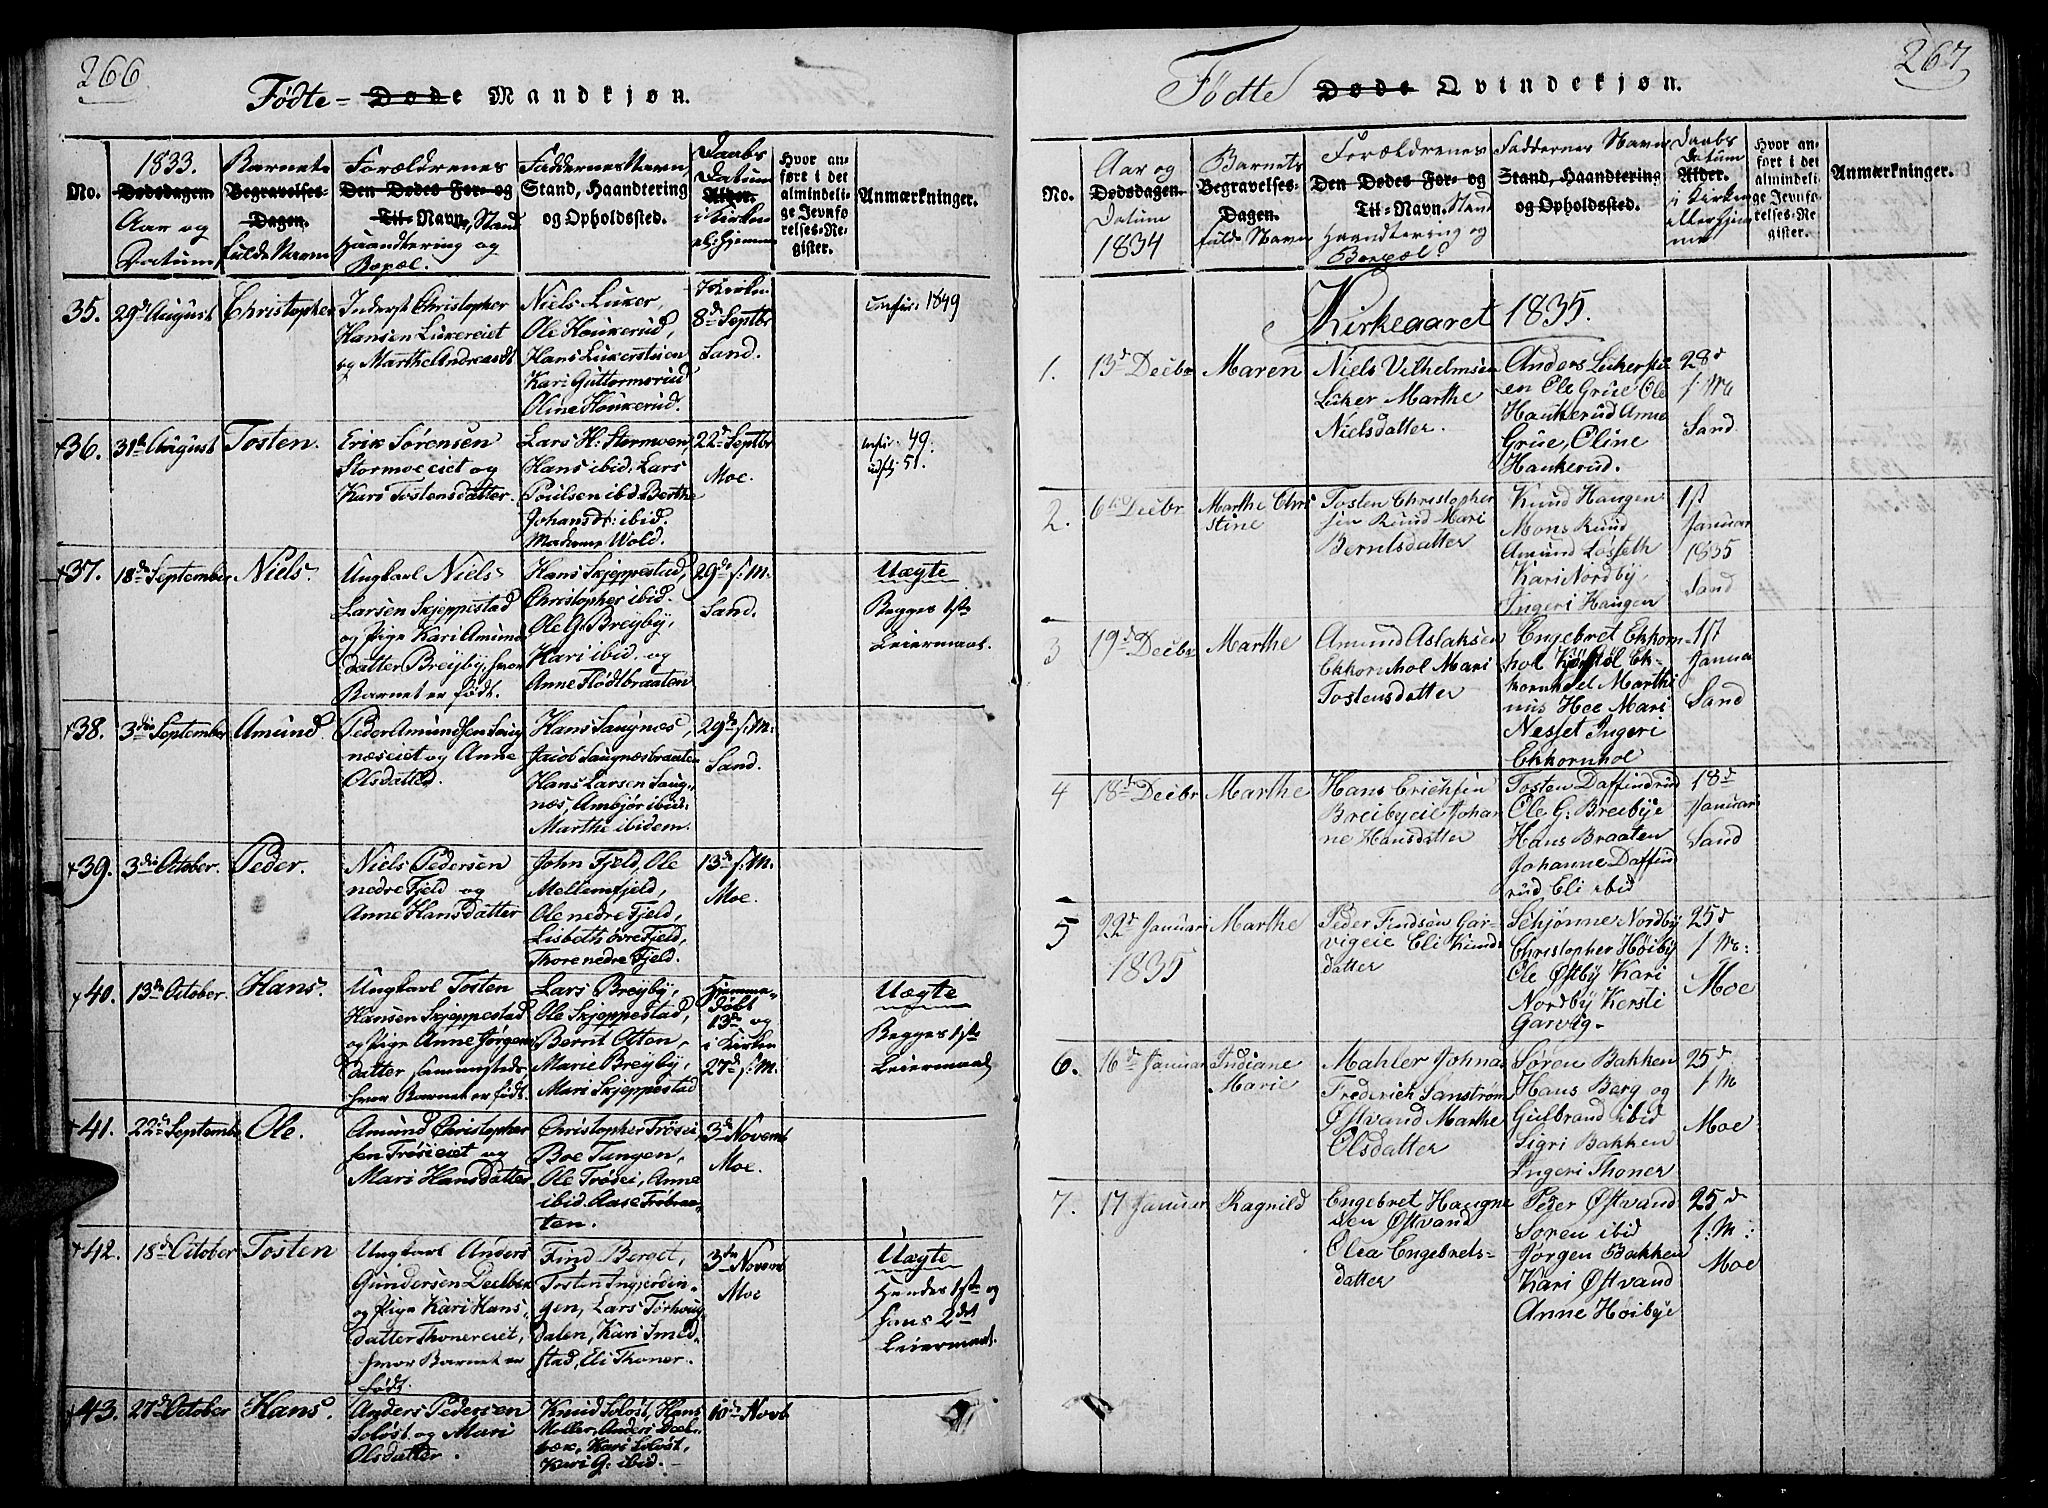 266
Fødte- Døde Mandkjøn.
No.
1833.
Dødsdagen.
Aar og
Datum
Barnets
Begravelses-
Dagen.
fulde Navn
Forældrenes
Den Dødes For- og
Til-Navn, Stand
Haandtering og
Bopæl.
Faddernes Navn
Stand, Haandtering
og Opholdssted.
Daabs
Datum
Alder.
i Kirken
el: hjemme
Hvor an-
ført i det
almindeli-
ge Jevnfø-
relses-Re-
gister.
Anmærkninger.
35.
29de August
Christopher
Inderst Christopher
Hansen Lukereiet
og Marthe Andreasdt
Niels Luker,
Ole Houkerud,
Hans Lukerstuen
Kari Guttormsrud
Oline Houkerud.
i Kirken
8de Septbr
Sand.
Confir: 1849
36.
31te August
Tosten.
Erik Sørensen
Stormoeeiet og
Kari Tostensdatter.
Lars H: Stormoen,
Hans ibid, Lars
Poulsen ibd. Berthe
Johansdt: ibid.
Madame Wold.
22de Septbr
Moe.
Confir: 49.
udfl: 51.
37.
18de September
Niels.
Ungkarl Niels
Larsen Skjeppestad
og Pige Kari Amunds
datter Breyby, hvor
Barnet er født.
Hans Skjeppestad,
Christopher ibid.
Ole G. Breyby,
Kari ibid. og
Anne Flodtbraaten
29de s: M.
Sand.
Uægte
Begges 1ste
Leiermaal.
38.
3die September
Amund.
Peder Amundsen Saug
næseiet og Anne
Olsdatter.
Hans Saugnes,
Jacob Saugnæsbraaten
Hans Larsen Saug-
næs, Ambjør ibid:
Marthe ibidem.
29de s: M:
Sand.
39.
3die October.
Peder.
Niels Pedersen
nedre Fjeld og
Anne Hansdatter
John Fjeld, Ole
Mellemfjeld,
Ole nedre Fjeld,
Lisbeth øvre Fjeld,
Thore nedre Fjeld.
13de s: M.
Moe.
40.
13de October.
Hans.
Ungkarl Tosten
Hansen Skjeppestad
og Pige Anne Jørgens
datter sammesteds
hvor Barnet er født.
Lars Breyby,
Ole Skjeppestad,
Berrit Otten,
Marie Breyby,
Mari Skjeppestad
Hjemme-
døbt
13de og
i Kirken
27de s: M.
Uægte
Begges 1ste
Leiermaal
41.
22de September
Ole.
Amund Christopher
sen Trøsieiet og
Mari Hansdatter
Christopher Trøsei,
Boe Tangen,
Ole Trøsei, Anne
ibid. Aase Trøbraa-
ten.
3die Novemb
Moe.
42.
18de October
Tosten
Ungkarl Anders
Gundersen Deelbek
og Pige Kari Hans-
datter Thonereiet,
hvor Barnet er
født.
Find Berget,
Tosten Ingjerdin-
gen, Lars Torhoug
dalen, Kari Smed-
stad, Eli Thoner.
3die Novemb
Moe
Uægte
Hendes 1ste og
hans 2det
Leiermaal.
43.
27de October
Hans.
Anders Pedersen
Soløst og Mari
Olsdatter.
Knud Soløst, Hans
Moller, Anders Deel-
bæk, Kari Soløst,
Kari G: ibid.
10de Novb
267
Fødte Døde Qvindekjøn.
No.
Aar og
Dødsdagen.
Datum
1834
Barnets
Begravelses-
Dagen.
fulde Navn
Forældrenes
Den Dødes For- og
Til-Navn. Stand
Haandtering og
Bopæl
Faddernes Navn
Stand, Haandtering
og Opholdssted.
Daabs
Datum
Alder.
i Kirken
eller hjem
me
Hvor an-
ført i det
almindeli-
ge Jevnfø-
relses-Re-
gister.
Anmærkninger.
Kirkeaaret 1835.
1.
13d Decbr
Maren
Niels Vilhelmsen
Luker Marthe
Nielsdatter.
Anders Lukerstu
en Ole Grue Ole
Haukerud Anne
Grue, Oline
Haukerud.
28d
s: Ma
Sand.
2.
6te Decbr
Marthe Chri
stine
Tosten Christopher
sen Ruud Mari
Berntsdatter
Knud Haugen
Mons Ruud
Amund Løsseth
Kari Nordby,
Ingeri Haugen
1st
Januar
1835
Sand
3
19d Decbr
Marthe
Amund Aslaksen
Ekkornhol Mari
Tostensdatter
Engebret Ekkorn-
hol Kjøstøl Ek-
kornhol Marthe
Hoe Mari
Nesset Ingeri
Ekkornhol
1st
Januar
Sand
4
18d Decbr
Marthe
Hans Erichsen
Breibyeie Johan
ne Hansdatter
Tosten Daffindrud
Ole G: Breibye
Hans Braaten
Johanne Daffind
rud Eli ibid
18d
Januari
Sand
5
22d Januari
1835
Marthe
Peder Findsen Gar-
vigeie Eli Knuds
datter
Schjønne Nordby
Christopher Høiby
Ole Østby Kari
Nordby Kersti
Garvig-
25d
s Ma:
Moe
6.
16d Januar
Indiane
Marie
Mahler Johnas
Frederich Sanstrøm
Østvand Marthe
Olsdatter
Søren Bakken
Hans Berg og
Gulbrand ibid
Sigri Bakken
Ingeri Thoner
25d
s M
Moe
7.
17 Januar
Ragnild
Engebret Haagne
sen Østvand
Olea Engebrets-
datter
Peder Østvand
Soren ibid
Jørgen Bakken
Kari Østvand
Anne Høibye
25d
s: M:
Moe